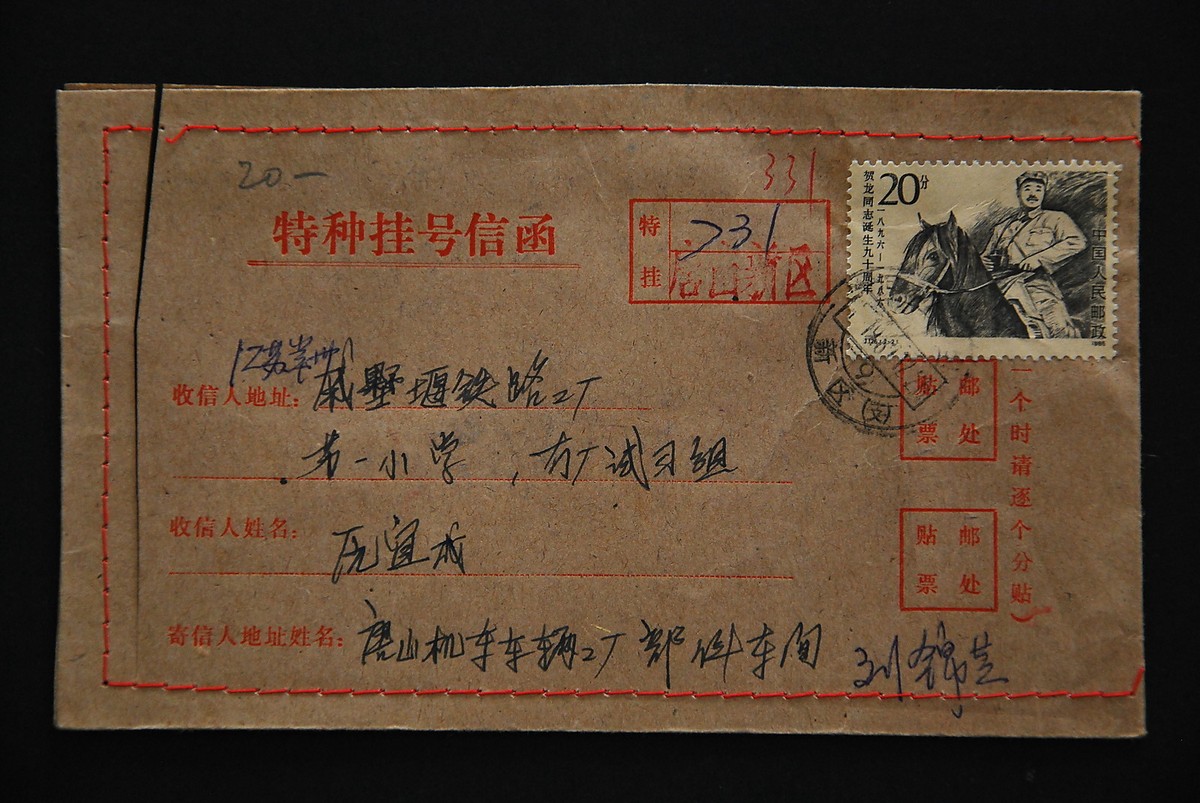 20—
331
特种挂号信函
特挂
331
唐山新区
20分
贺龙同志诞生九十周年
一八九六—一九八六
中国人民邮政
1986
新区
江苏常州
收信人地址：戚墅堰铁路工厂
第一小学，
收信人姓名：
寄信人地址姓名：唐山机车车辆工厂 部件车间 刘锦芸
贴邮票处
贴邮票处
一个时请逐个分贴）